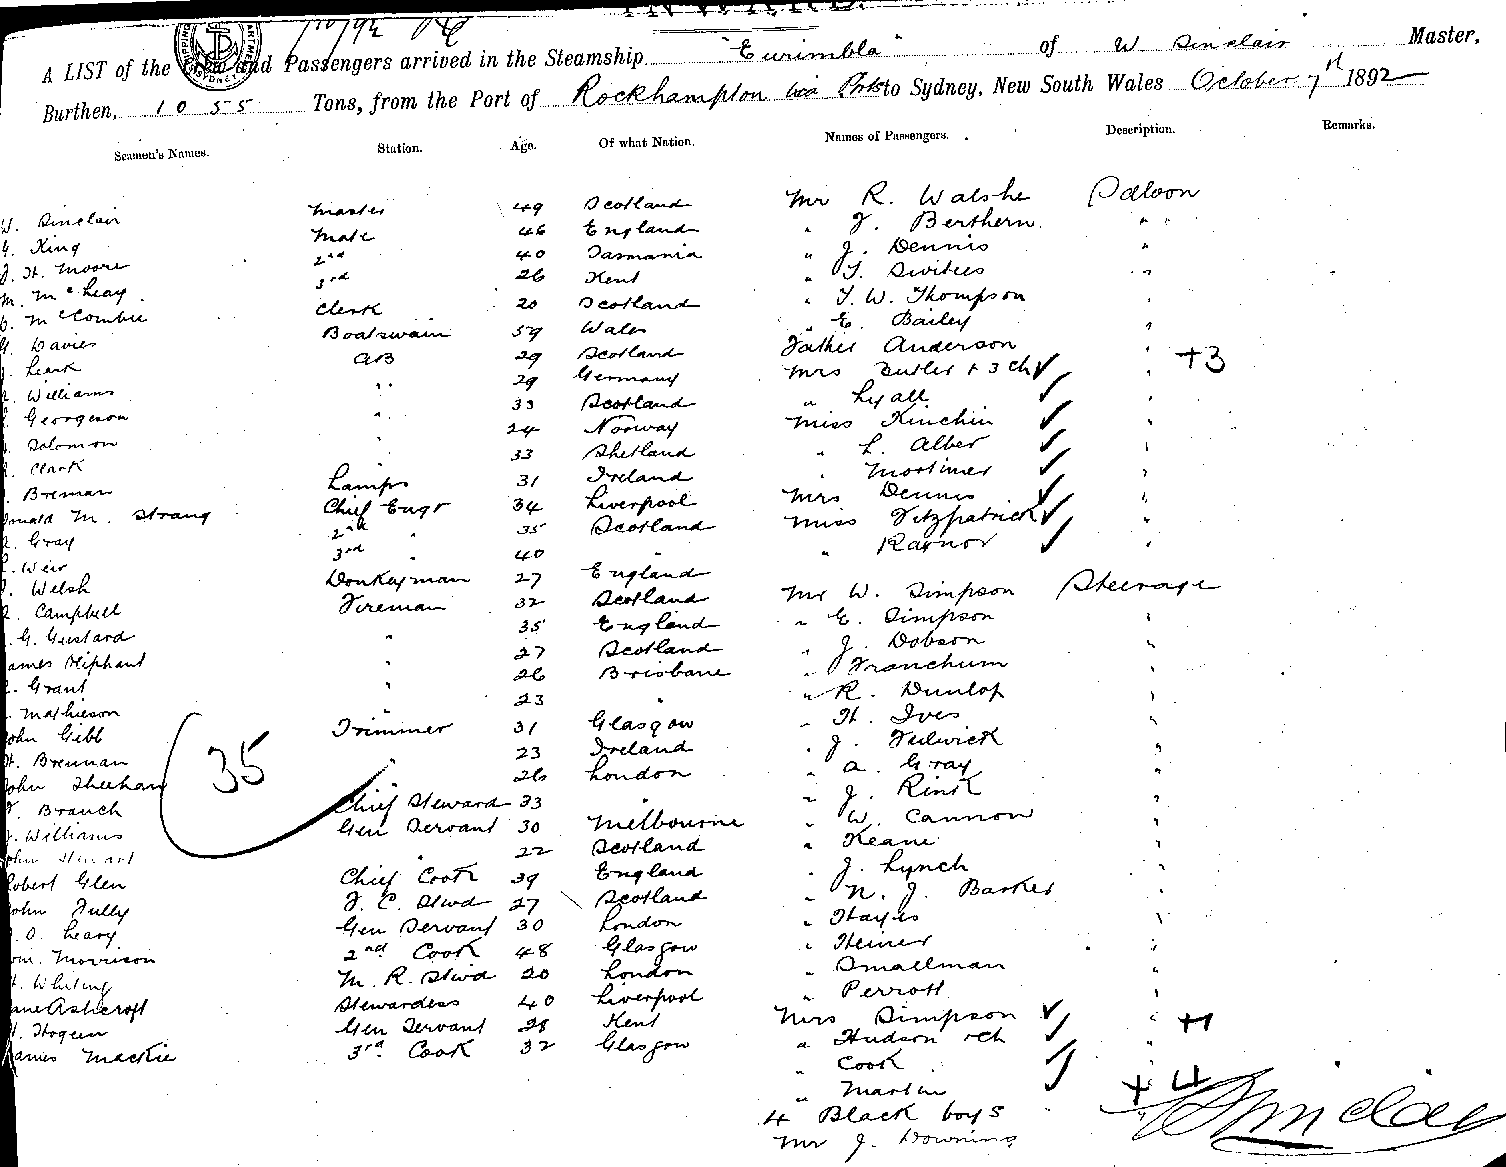 INWARD.
A LIST of the Crew and Passengers arrived in the Steamship "Eurimbla" of W Sinclair Master,
Burthen, 1055 Tons, from the Port of Rockhampton via Ports to Sydney, New South Wales October 7th 1892
Seamen's Names. Station. Age. Of what Nation. Names of Passengers. Description. Remarks.
W. Sinclair Master 49 Scotland Mr R. Walshe Saloon
King Mate 46 England " J. Berthern " "
J. H. Moore 2nd 40 Tasmania " J. Dennis "
M. McLeay 3rd 26 Kent "
McCombie Clerk 20 Scotland " T. W. Thompson "
Davies Boatswain 59 Wales " E. Bailey "
Leask AB 29 Scotland Father Anderson "
Williams " 29 Germany Mrs Butler + 3 ch " +3
Georgeson " 33 Scotland " Lyall "
Solomon " 24 Norway Miss Kinchin "
Clark 33 Shetland " L. Alber "
Breman Lamps 31 Ireland " Mortimer "
Donald M. Strang Chief Engr 34 Liverpool Mrs Dennis "
Gray 2nd " 35 Scotland Miss Fitzpatrick "
Weir 3rd 40 " " Raynor "
Welsh Donkeyman 27 England
Campbell Fireman 32 Scotland Mr W. Simpson Steerage
G. Gustard " 35 England " E. Simpson "
James Oliphant " 27 Scotland " J. Dobson "
Grant " 26 Brisbane " Franchum "
Mathieson 23 " " R. Dunlop "
John Gibb Trimmer 31 Glasgow " H. Ives "
H. Brennan 23 Ireland " J. Fedwick "
John Sheehan " 26 London " A. Gray "
Branch Chief Steward 33 " " J. Rink "
Williams Gen Servant 30 Melbourne " W. Cannon "
John Stewart " 22 Scotland " Keane "
Robert Glen Chief Cook 39 England " J. Lynch "
John Tully F. C. Stwd 27 Scotland " N. J. Barker "
O. Leary Gen Servant 30 London " Hayes "
Wm. Morrison 2nd Cook 48 Glasgow " Heiner "
H. Whiting M. R. Stwd 20 London " Smallman "
Jane Ashcroft Stewardess 40 Liverpool " Perrott "
Hogein Gen Servant 28 Kent Mrs Simpson "
James Mackie 3rd Cook 32 Glasgow " Hudson + ch " +1
" Cook "
" Martin "
4 Black boys +4
Mr J. Downing
35
W Sinclair